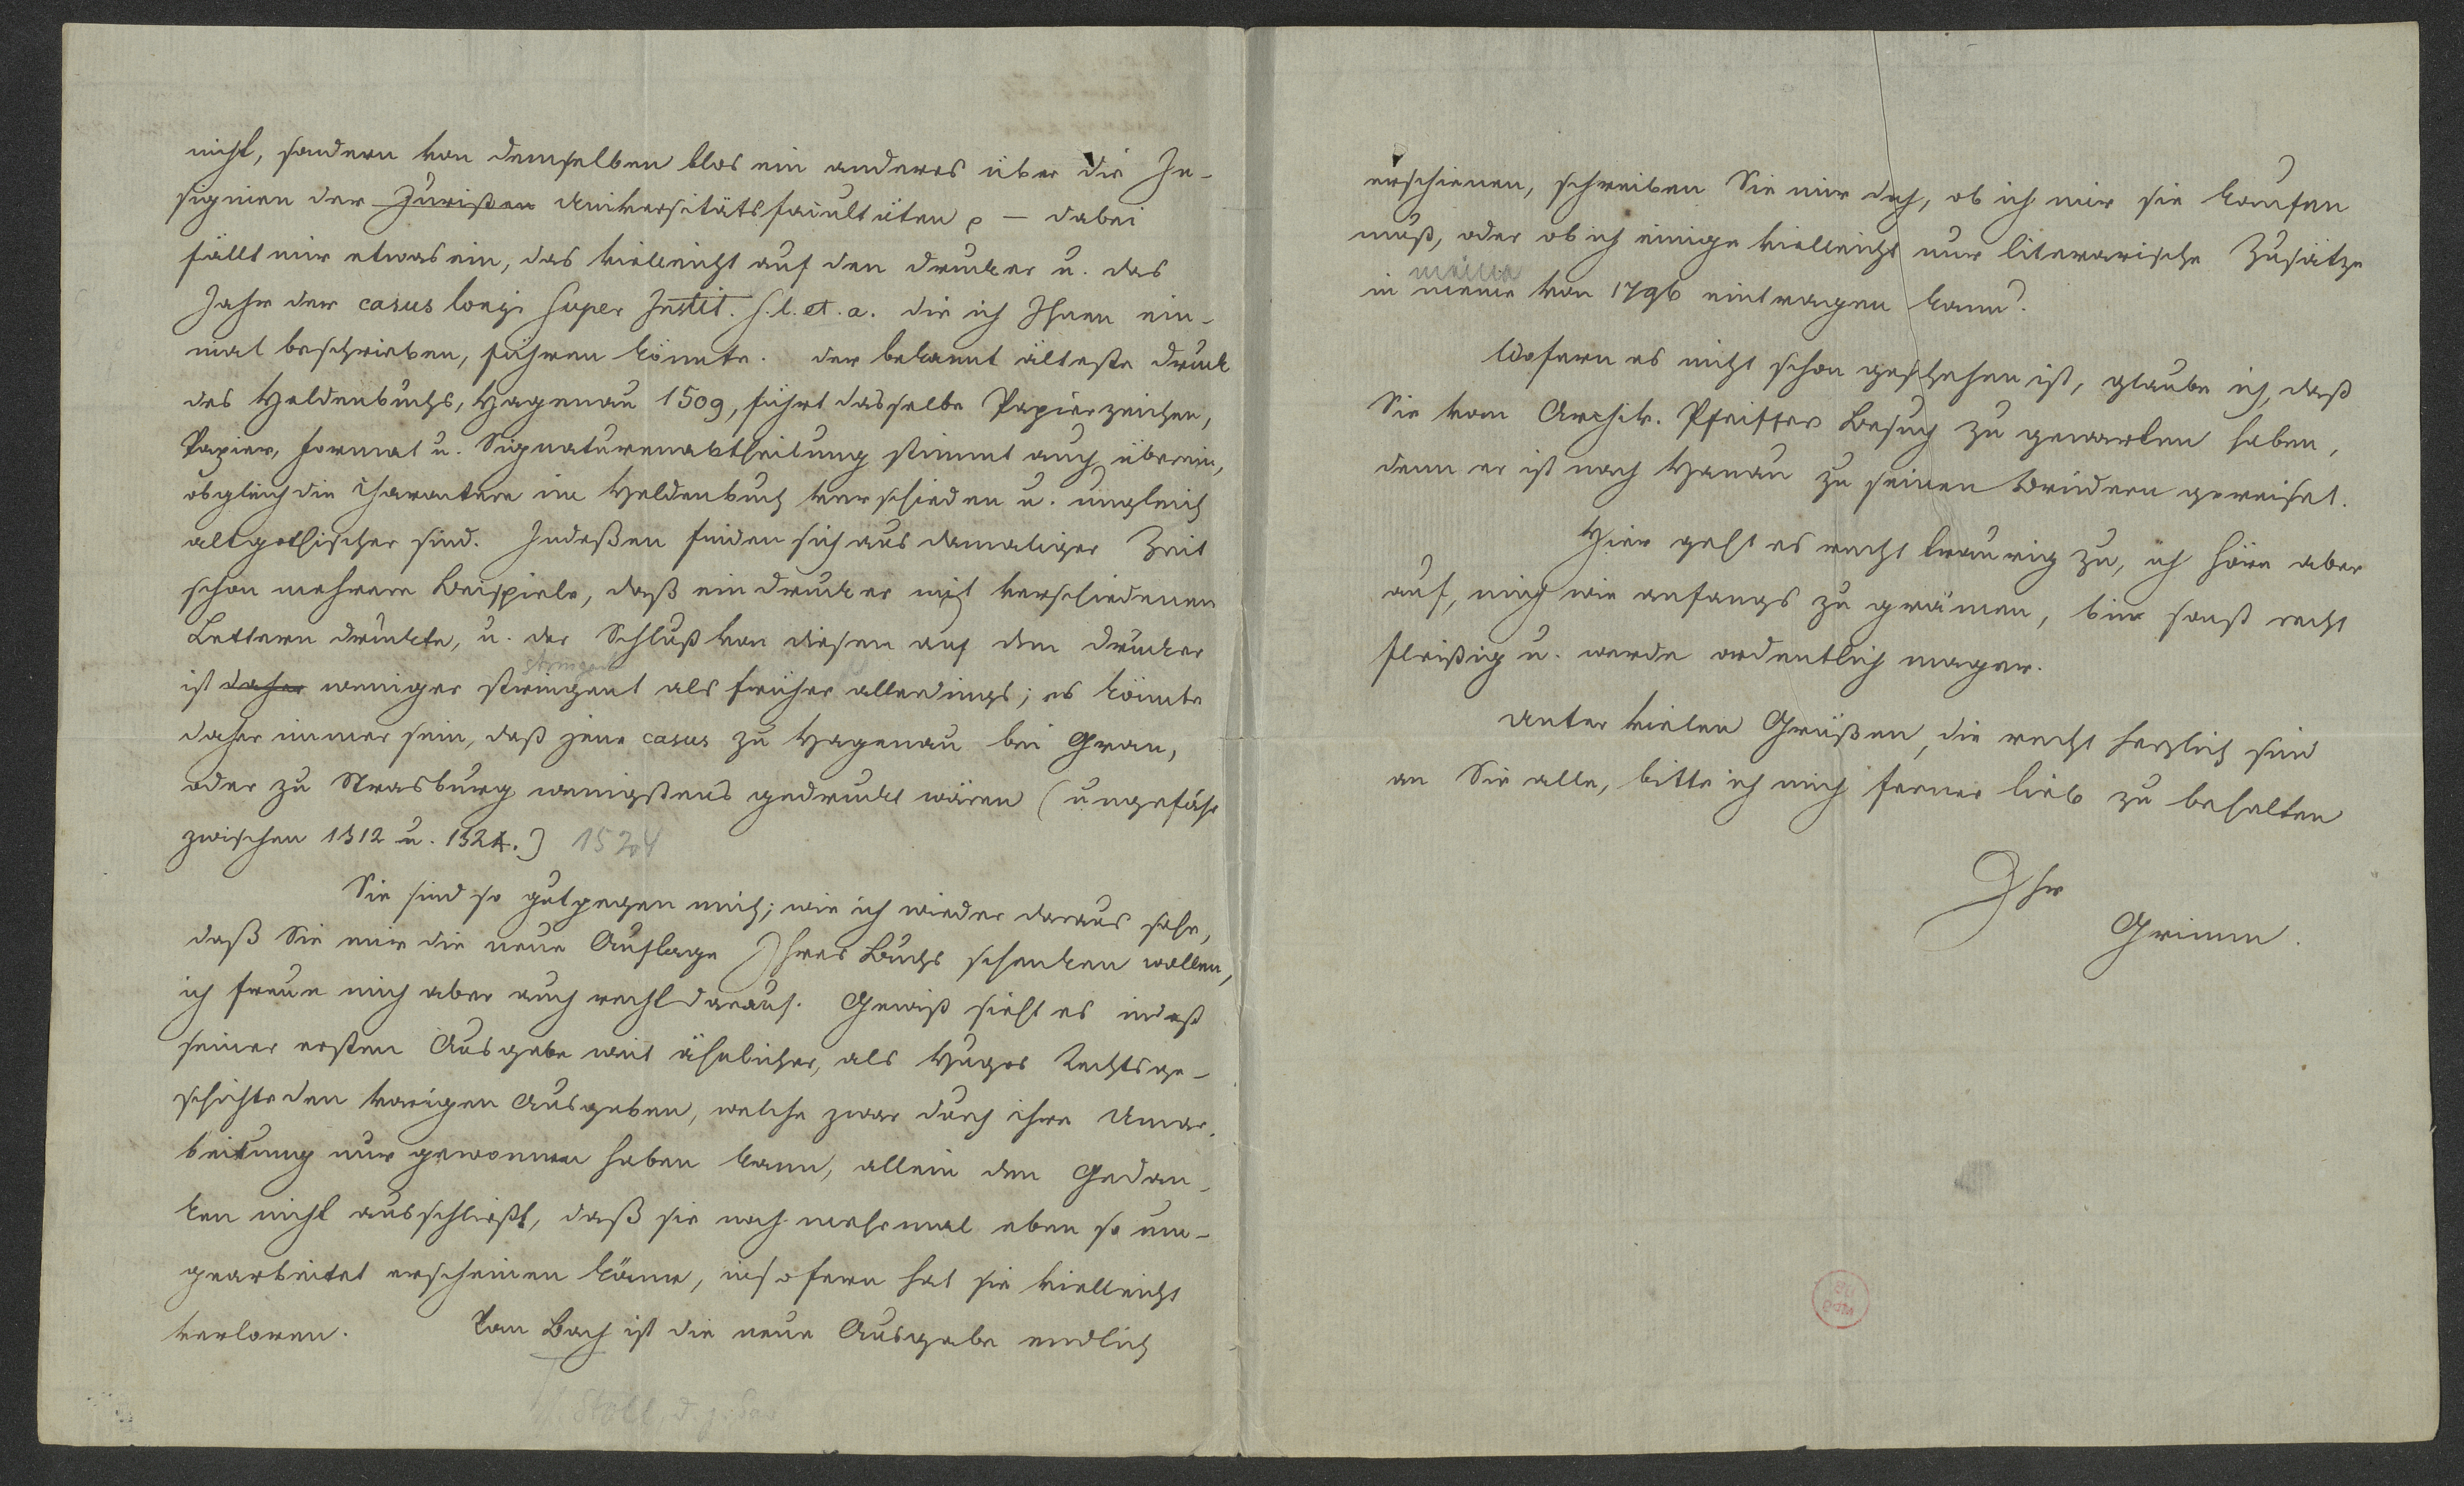 nicht, sondern von demselben blos ein anderes über die In-
signien der Jurißen Universitätsfacultäten p — dabei
fällt mir etwas ein, das vielleicht auf den Drucker u. das
Jahr der casus longi super Instit. s. l. et. a. die ich Ihnen ein-
mal beschrieben, führen könnte. der bekannt älteste Druck
des Heldenbuchs, Hagenau 1509, führt dasselbe Papierzeichen,
Papier, Format u. Signaturenabtheilung stimmt auch überein,
obgleich die Charactere im Heldenbuch verschieden u. ungleich
altgothischer sind. Indeßen finden sich aus damaliger Zeit
schon mehrere Beispiele, daß ein Drucker mit verschiedenen
Lettern druckte, u. der Schluß von diesen auf den Drucker
stringent
ist daher weniger stringent als früher allerdings; es könnte
daher immer sein, daß jene casus zu Hagenau bei Gran,
oder zu Strasburg wenigstens gedruckt wären (ungefähr
zwischen 1512 u. 1524.) 1524
Sie sind so gut gegen mich; wie ich wieder daraus sehe,
daß Sie mir die neue Auflage Ihres Buchs schenken wollen,
ich freue mich aber auch recht darauf. Gewiß sieht es indeß
seiner ersten Ausgabe weit ähnlicher, als Hugos Rechtsge-
schichte den vorigen Ausgaben, welche zwar durch ihre Umar-
beitung nur gewonnen haben kann, allein den Gedan-
ken nicht ausschließt, daß sie noch mehrmal eben so um-
gearbeitet erscheinen könne, insofern hat sie vielleicht
verloren. Vom Bach ist die neue Ausgabe endlich
Stoll, d. j. Sav
erschienen, schreiben Sie mir doch, ob ich mir sie kaufen
muß, oder ob ich einige vielleicht nur literarische Zusätze
meine
in meine von 1796 eintragen kann?
Wofern es nicht schon geschehen ist, glaube ich, daß
Sie vom Archiv. Pfeiffer Besuch zu gewarten haben,
denn er ist nach Hanau zu seinen Brüdern gereiset.
Hier geht es recht traurig zu, ich höre aber
auf, mich wie anfangs zu grämen, bin sonst recht
fleißig u. werde ordentlich mager.
Unter vielen Grüßen, die recht herzlich sind
an Sie alle, bitte ich mich ferner lieb zu behalten
Ihr
Grimm.